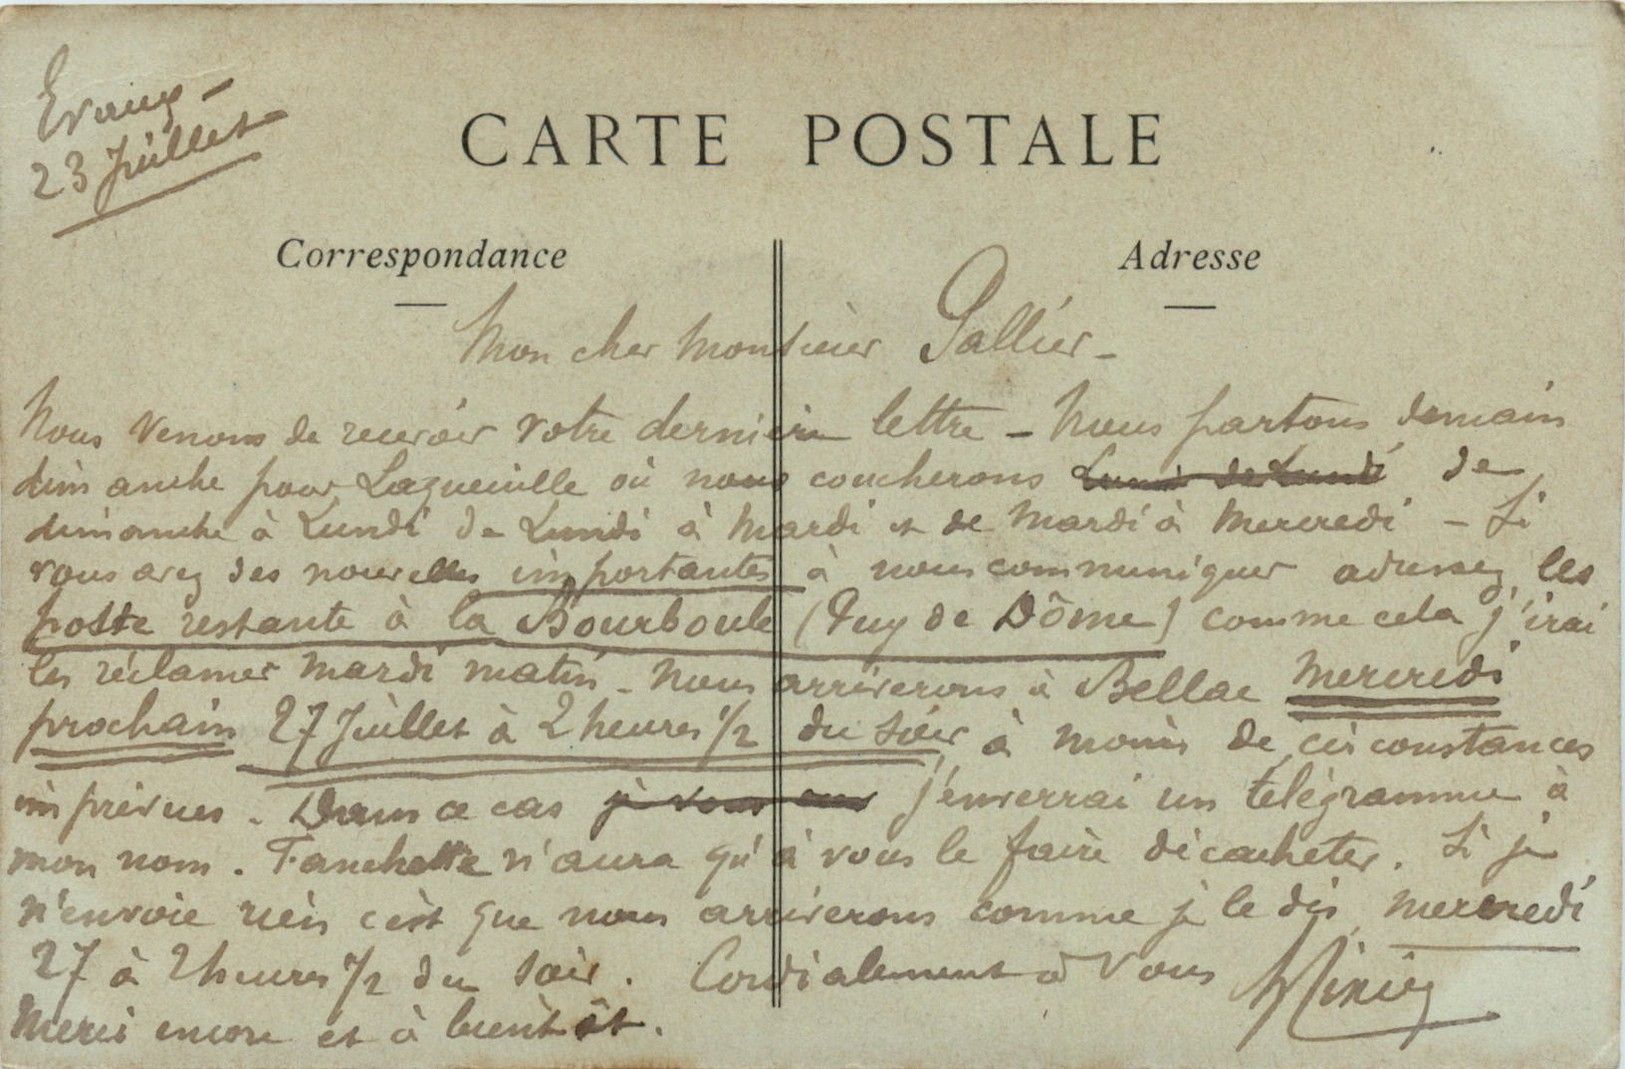 Evaux -
23 Juillet
CARTE POSTALE
Correspondance
Adresse
Mon cher Monsieur Pallier -
Nous venons de recevoir votre dernière lettre - Nous partons demain
dimanche pour Laqueuille où nous coucherons de
dimanche à Lundi de Lundi à Mardi et de Mardi à Mercredi - Si
vous avez des nouvelles importantes à nous communiquer adressez les
poste restante à la Bourboule (Puy de Dôme) comme cela j'irai
les réclamer Mardi matin - Nous arriverons à Bellac Mercredi
prochain 27 Juillet à 2 heures 1/2 du soir à moins de circonstances
imprévues. Dans ce cas je vous j'enverrai un télégramme à
mon nom. Fanchette n'aura qu'à vous le faire décacheter. Si je
n'envoie rien c'est que nous arriverons comme je le dis mercredi
27 à 2 heures 1/2 du soir. Cordialement à vous
Merci encore et à bientôt.